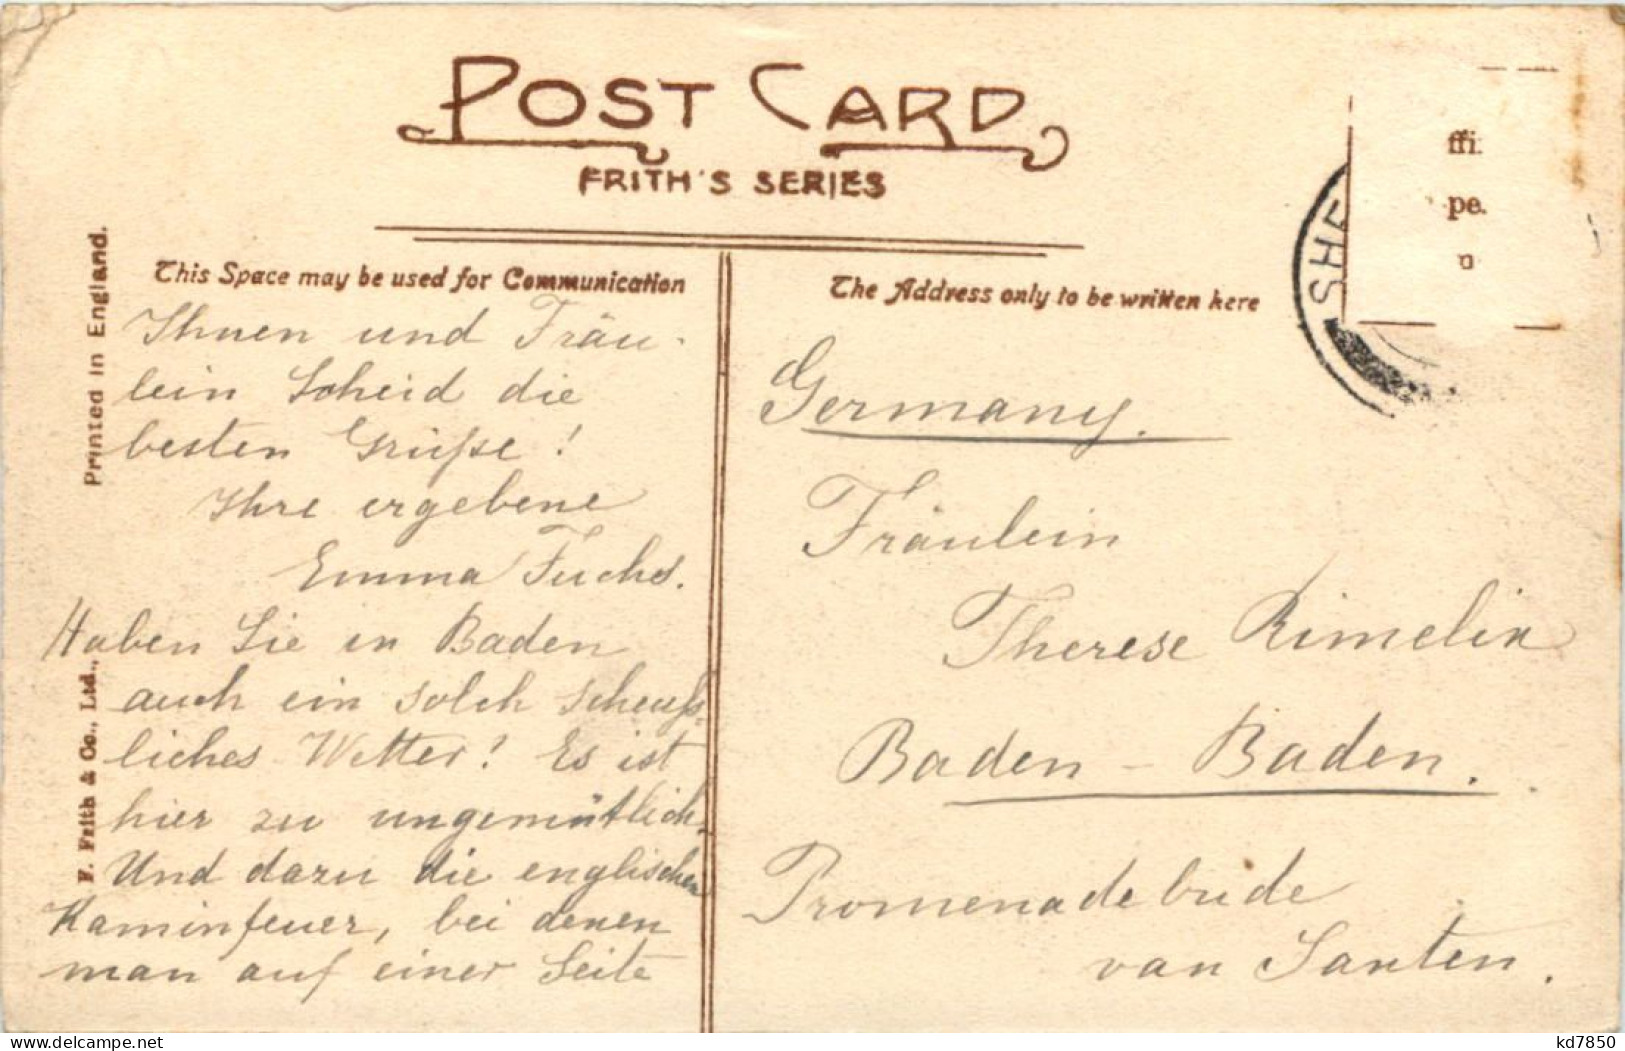 POST CARD
FRITH'S SERIES
This Space may be used for Communication
The Address only to be written here
Printed in England.
F. Frith & Co., Ltd.,
ffi
pe.
SHE
Ihnen und Fräu-
lein Scheid die
besten Grüße!
Ihre ergebene
Emma Fuchs.
Haben Sie in Baden
auch ein solch scheuß-
liches Wetter! Es ist
hier zu ungemütlich.
Und dazu die englischen
Kaminfeuer, bei denen
man auf einer Seite
Germany.
Fräulein
Therese Rimelin
Baden-Baden.
Promenadebude
van Santen.
kd7850